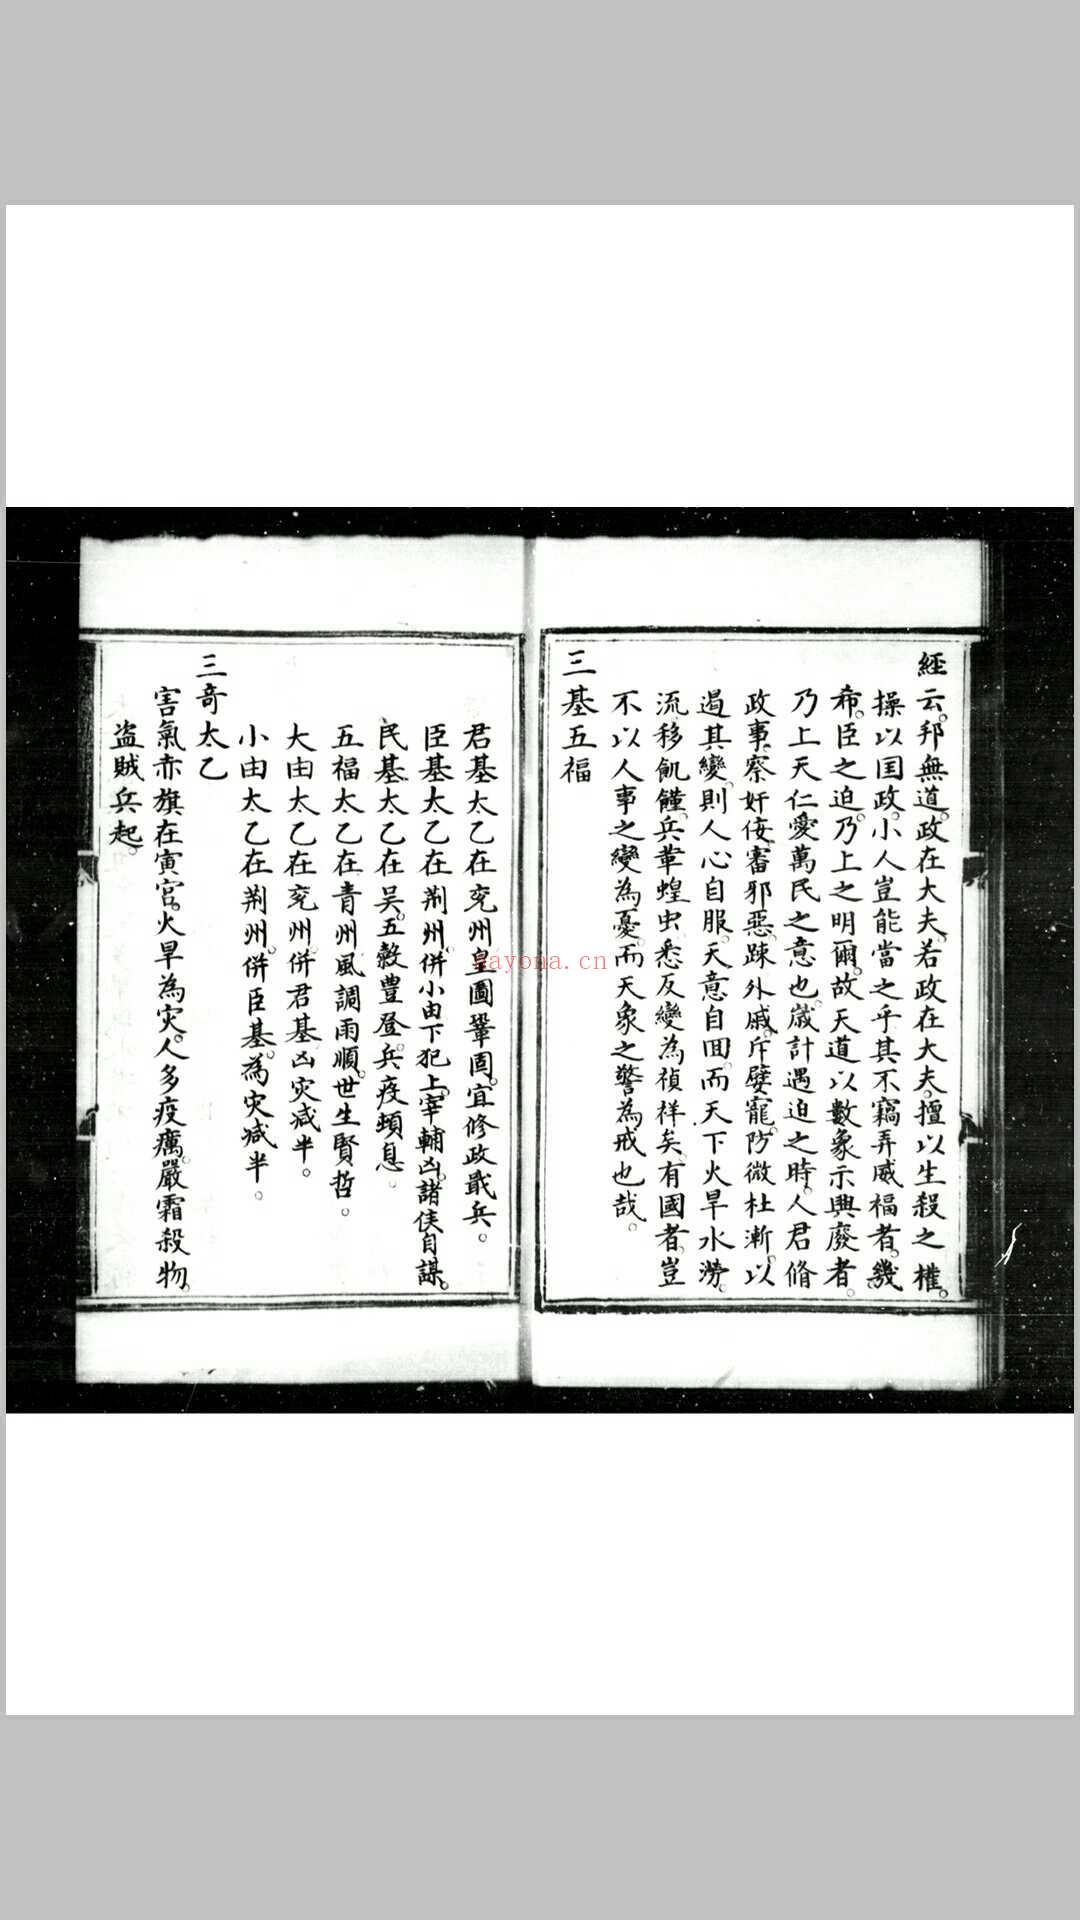 經云邦無道。政在大夫。若政在大夫。擅以生殺之權。
操以国政。小人豈能當之乎其不竊弄威福者。幾
希。臣之迫。乃上之明爾。故天道以數象示興廢者。
乃上天仁愛萬民之意也。歲計遇迫之時。人君脩
政事。察奸佞。審邪惡。踈外戚。斥嬖寵。防微杜漸。以
遏其變。則人心自服。天意自囬。而天下火旱水澇。
流移飢饉。兵革蝗虫悉反變為禎祥矣。有國者。豈
不以人事之變為憂。而天象之警為戒也哉。
三基五福
君基太乙在兖州皇圖鞏固。宜修政戢兵。
臣基太乙在荆州。併小由下犯上。宰輔凶。諸侯自謀。
民基太乙在吴。五穀豊登。兵疫頓息。
五福太乙在青州風調雨順。世生賢哲。
大由太乙在兖州。併君基。凶灾减半。
小由太乙在荆州。併臣基。為灾减半。
三奇太乙
害氣赤旗在寅宫。火旱為灾。人多疫癘。嚴霜殺物。
盗賊兵起。
nayona.cn